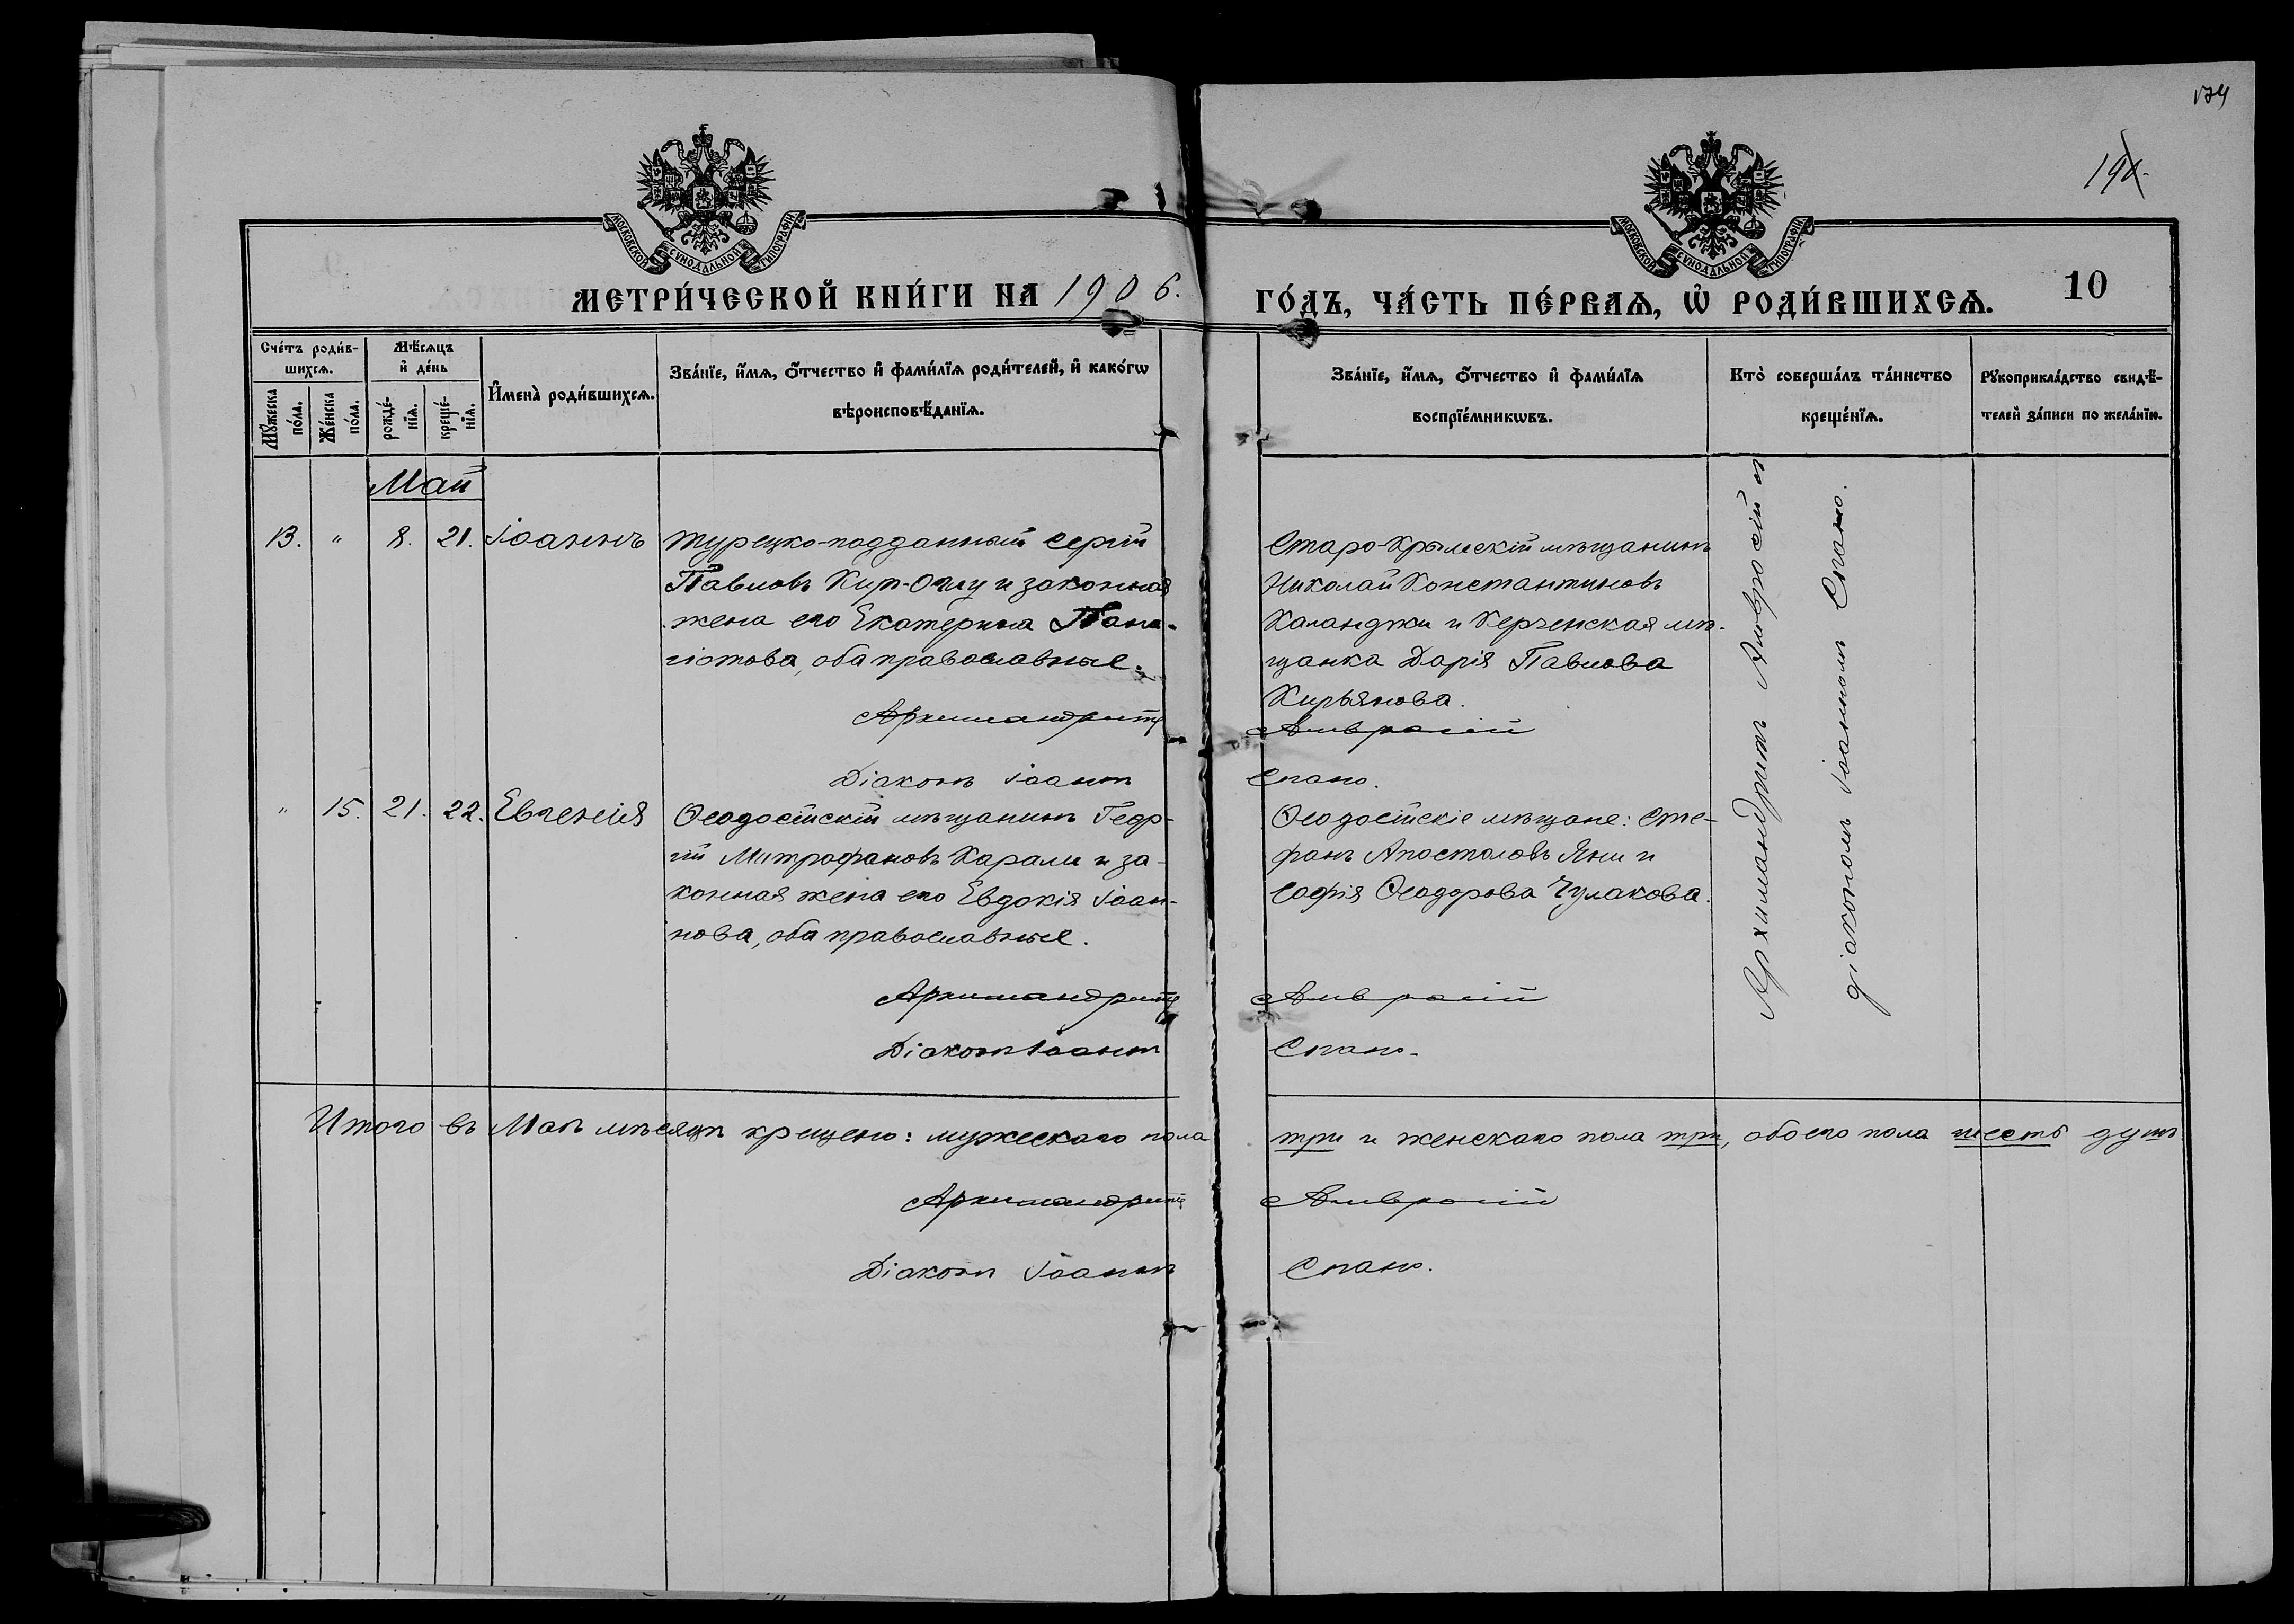 194
МОСКОВСКОЙ СѴНОДАЛЬНОЙ ТИПОГРАФІИ
МОСКОВСКОЙ СѴНОДАЛЬНОЙ ТИПОГРАФІИ
МЕТРИ́ЧЕСКОЙ КНИ́ГИ НА 1906. ГО́ДЪ, ЧА́СТЬ ПЕ́РВАѦ, Ѡ҆ РОДИ́ВШИХСѦ.
10
Сче́тъ роди́в-
шихсѧ.
Мꙋ́жеска по́ла.
Же́нска по́ла.
Мѣ́сѧцъ
и҆ де́нь
рожде́-
нїѧ.
креще́-
нїѧ.
И҆мена̀ роди́вшихсѧ.
Зва́нїе, и҆́мѧ, ѻ҆́тчество и҆ фами́лїѧ роди́телей, и҆ како́гѡ
вѣроисповѣ́данїѧ.
Зва́нїе, и҆́мѧ, ѻ҆́тчество и҆ фами́лїѧ
воспрїе́мникѡвъ.
Кто̀ соверша́лъ та́инство
креще́нїѧ.
Рꙋкоприкла́дство свидѣ́-
телей за́писи по жела́нїю.
Май
13. " 8. 21. Іоаннъ
Турецко-подданный Сергій
Павловъ Кир-Оглу и законная
жена его Екатерина Пана-
гіотова, оба православные.
Архимандритъ
Діаконъ Іоаннъ
Старо-Крымскій мѣщанинъ
Николай Константиновъ
Каланджи и Керченская мѣ-
щанка Дарія Павлова
Кирьянова.
Амвросій
Спано.
" 15. 21. 22. Евгенія
Ѳеодосійскій мѣщанинъ Геор-
гій Митрофановъ Карали и за-
конная жена его Евдокія Іоан-
нова, оба православные.
Архимандритъ
Діаконъ Іоаннъ
Ѳеодосійскіе мѣщане: Сте-
фанъ Апостоловъ Яни и
Софія Ѳеодорова Чулакова.
Амвросій
Спано.
Архимандритъ Амвросій и
діакономъ Іоанномъ Спано.
Итого въ Маѣ мѣсяцѣ крещено: мужескаго пола три и женскаго пола три, обоего пола шесть душъ.
Архимандритъ Амвросій
Діаконъ Іоаннъ Спано.